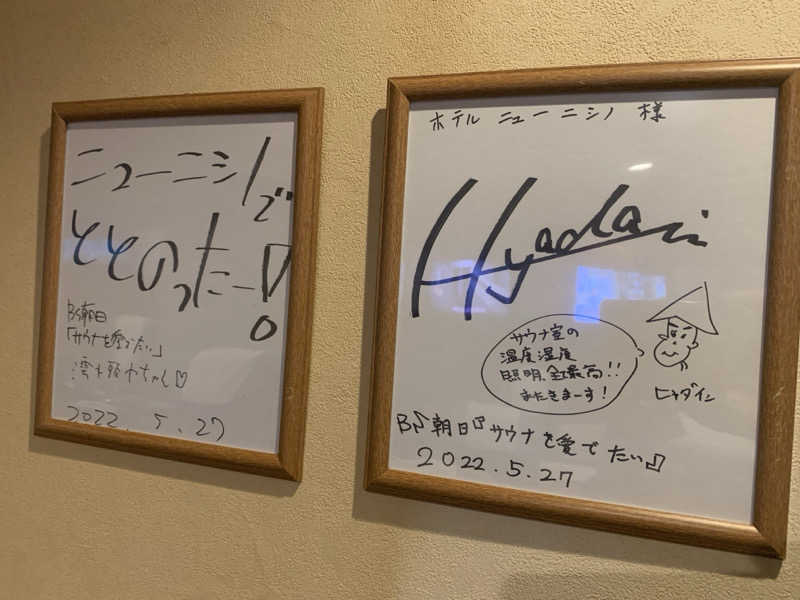 ニューニシノで
ととのったー!
BS朝日
「サウナを愛でたい」
2022.5.27
ホテル ニューニシノ 様
Hyadain
サウナ室の
温度湿度
照明、全て最高!!
またきまーす!
ヒャダイン
BS朝日『サウナを愛でたい』
2022.5.27